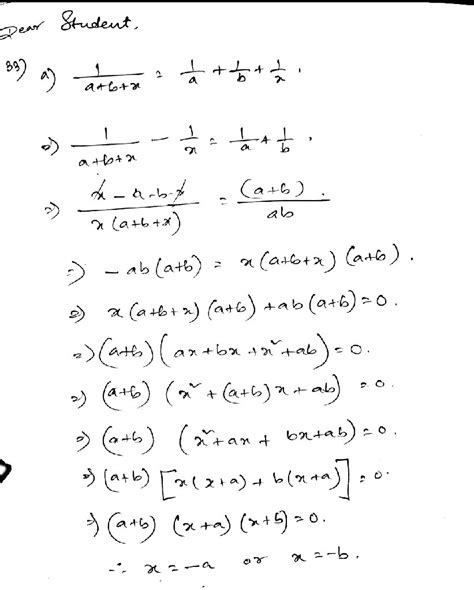 Dear Student,
33) a) 1/(a+b+x) = 1/a + 1/b + 1/x .
⇒) 1/(a+b+x) − 1/x = 1/a + 1/b .
⇒) (x − a − b − x)/(x(a+b+x)) = (a+b)/ab .
⇒) − ab(a+b) = x(a+b+x)(a+b) .
⇒) x(a+b+x)(a+b) + ab(a+b) = 0 .
⇒) (a+b)(ax+bx+x²+ab) = 0 .
⇒) (a+b) (x² + (a+b)x + ab) = 0 .
⇒) (a+b) (x²+ax + bx+ab) = 0 .
⇒) (a+b) [x(x+a) + b(x+a)] = 0 .
⇒) (a+b) (x+a) (x+b) = 0 .
∴ x = −a or x = −b .